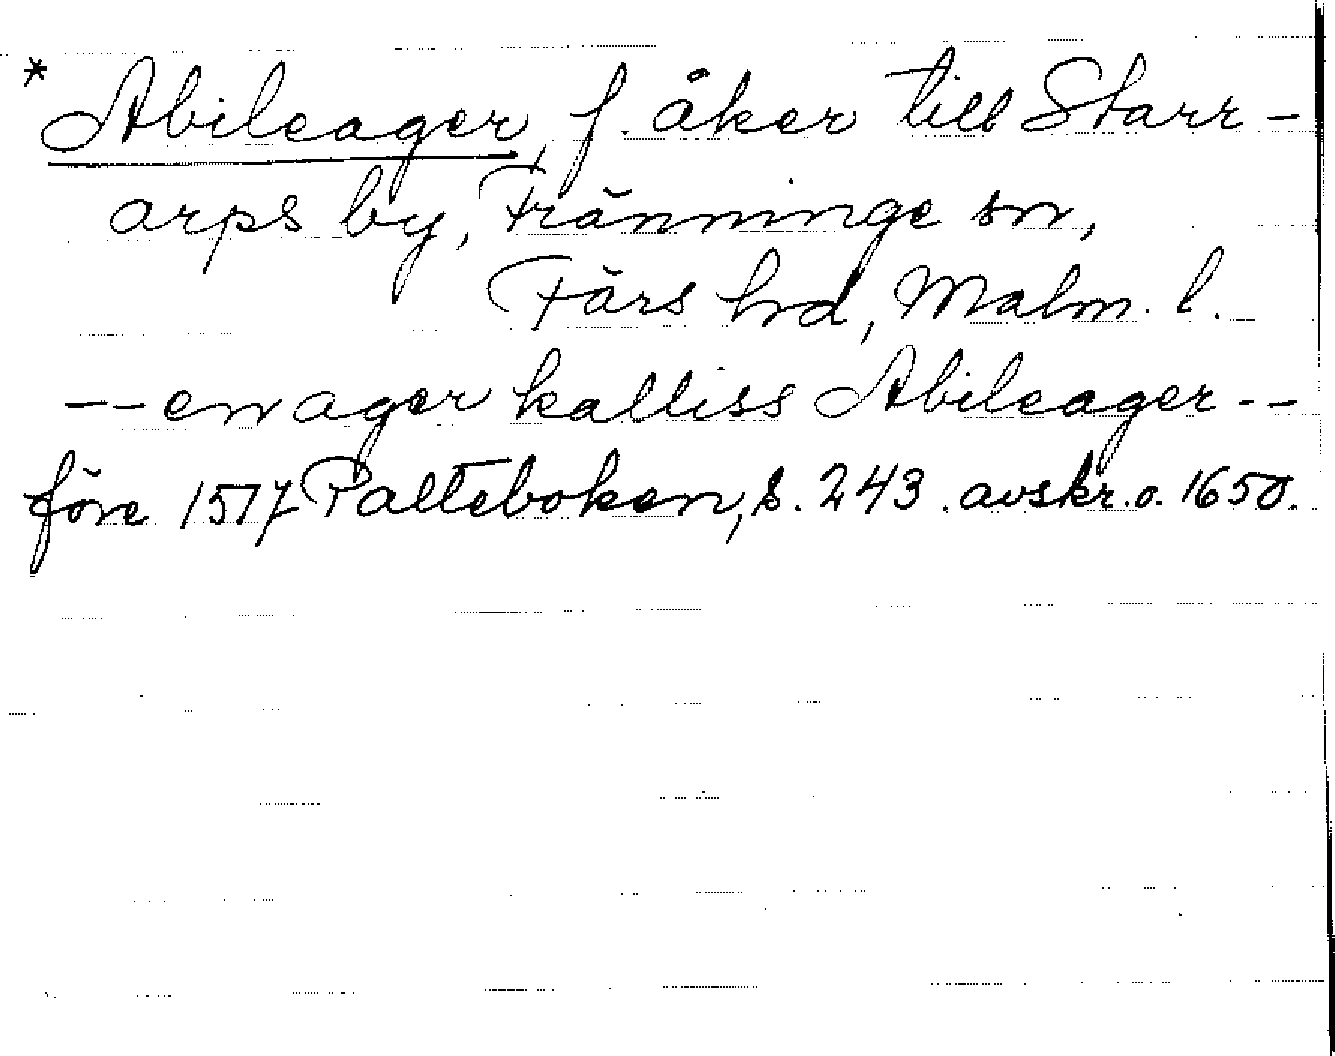 * Abileager, f. åker till Starr-
arps by, Tränninge sn,
Färs hrd, Malm. l.
-- en ager kalliss Abileager --
före 1517 Palteboken, s. 243. avskr. o. 1650.